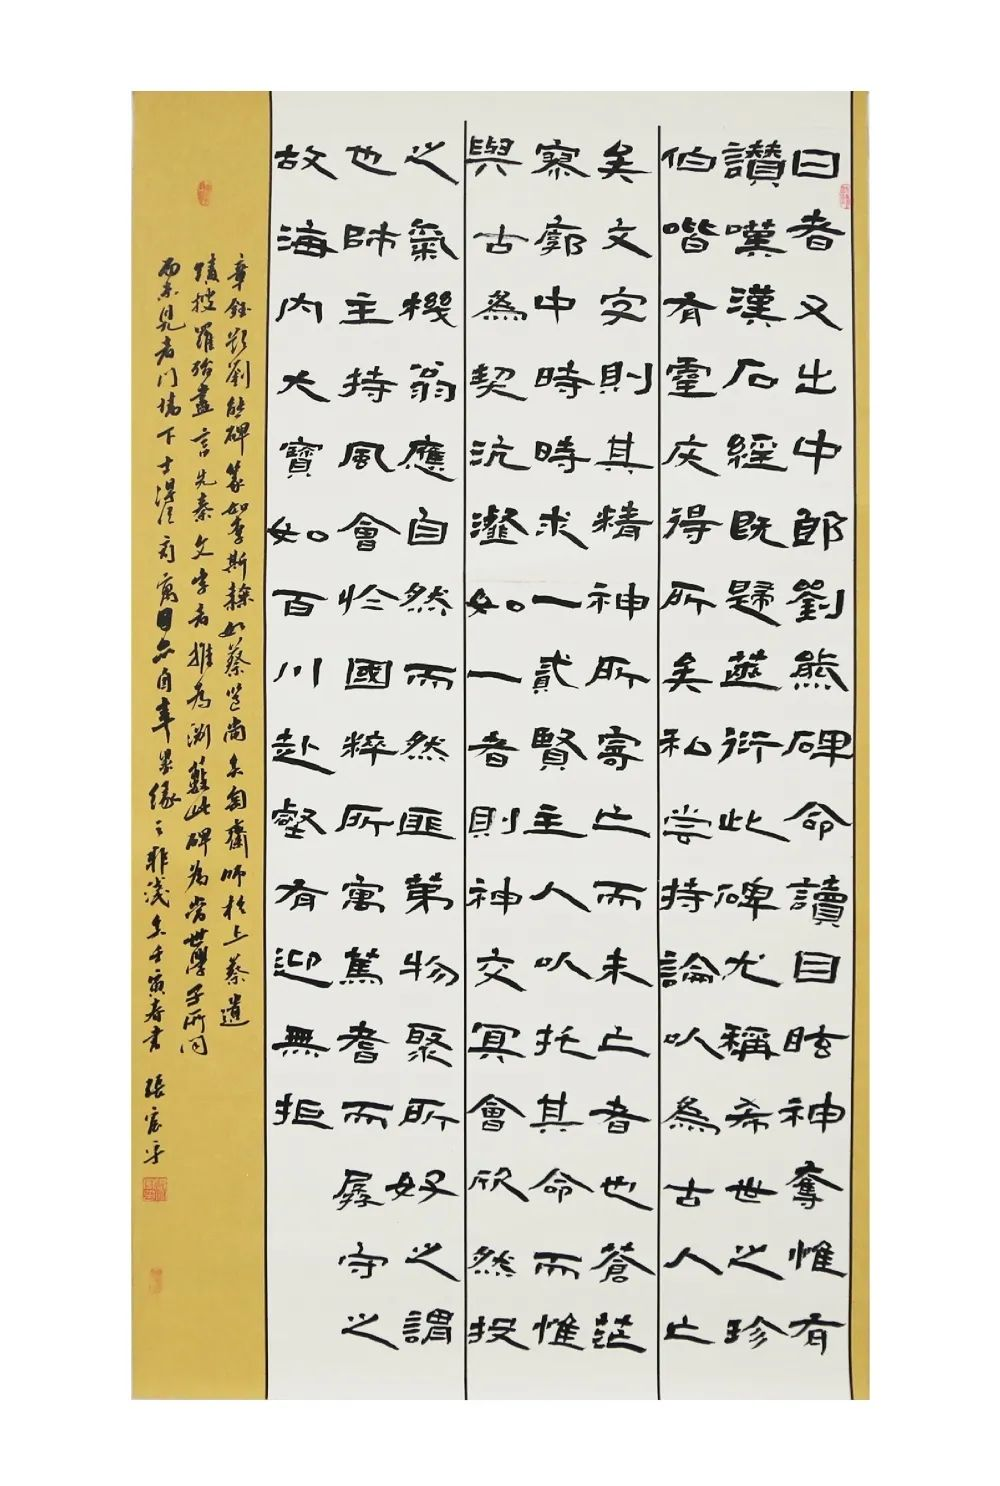 曰者又出中郎劉熊碑命讀目眩神奪惟有
讚嘆漢石經既歸蘧衍此碑尤稱希世之珍
伯喈有靈庆得所矣私尝持論以為古人亡
矣文字則其精神所寄亡而未亡者也蒼茫
寥廓中時時求一貳賢主人以托其命而惟
與古為契沆瀣如一者則神交冥會欣然投
之氣機翕應自然而然匪第物聚所好之謂
也師主持風會於國粹所寓篤耆而孱守之
故海内大寶如百川赴壑有迎無拒
章鈺跋劉熊碑篆如李斯隸如蔡邕尚矣匋齋師於上蔡遺
蹟搜羅殆盡言先秦文字者推為淵藪此碑為當世學子所同
而未見者門墻下士得從
寓目亦自幸墨緣之非淺矣壬寅春書
張宏平